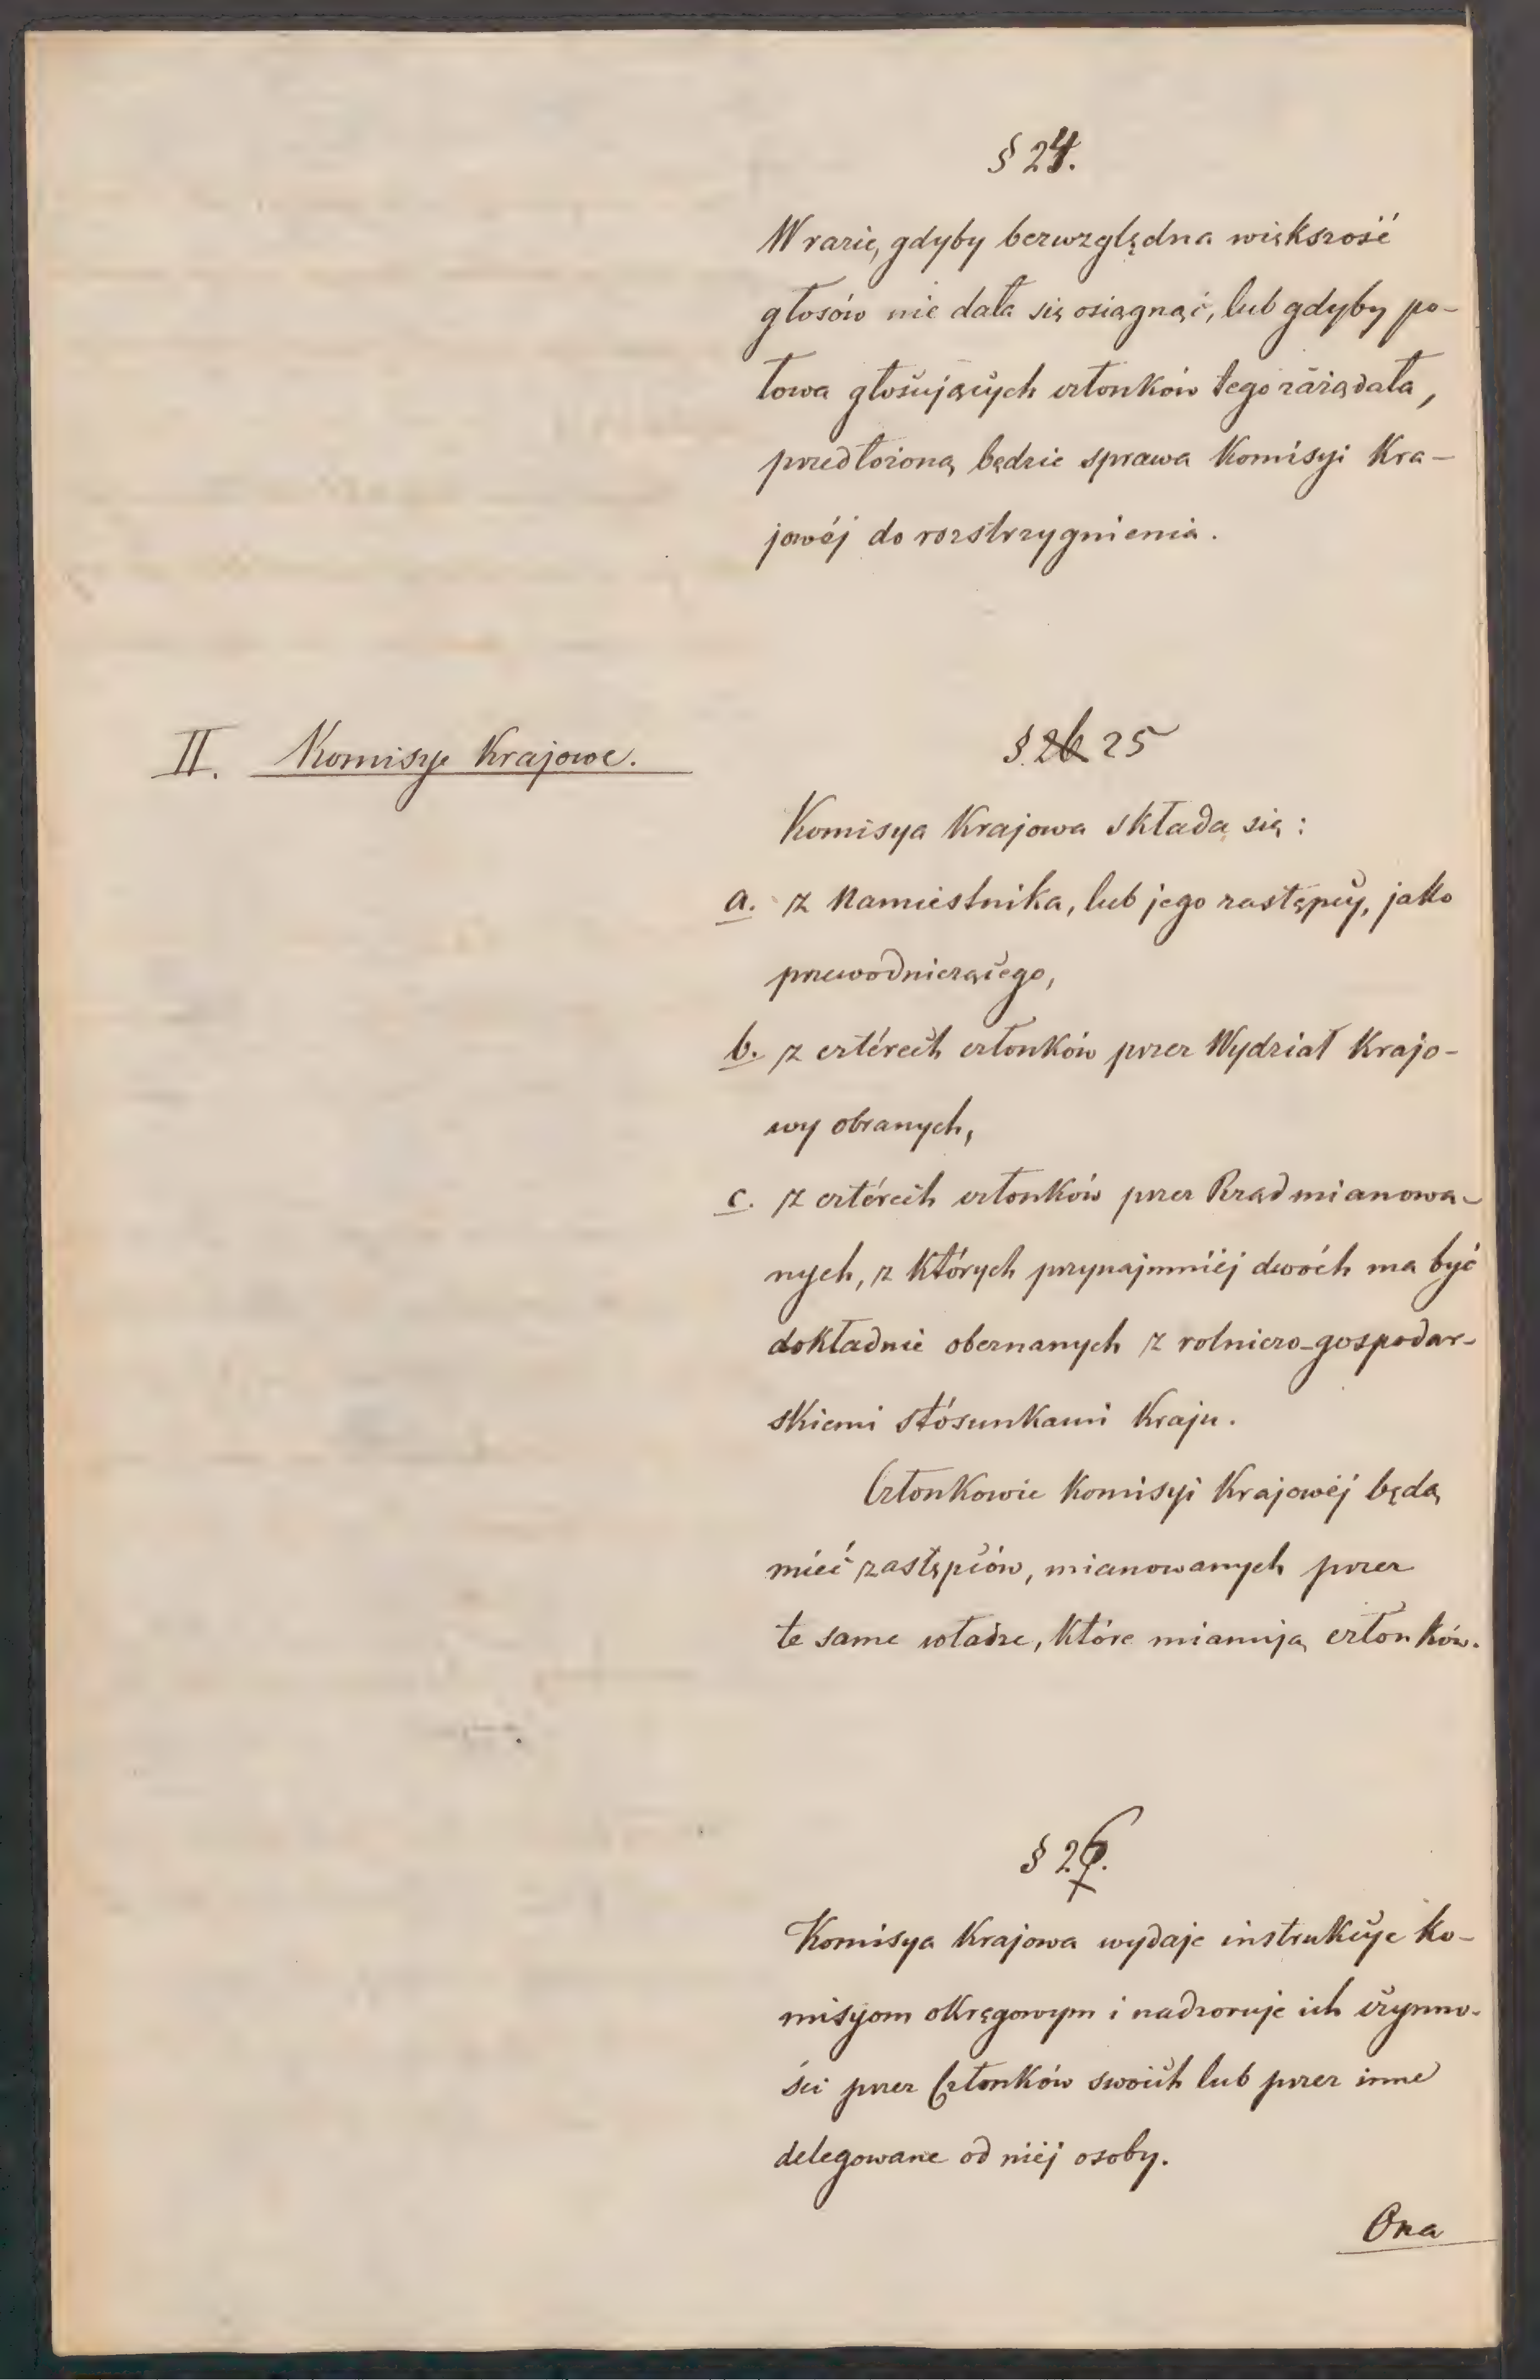 § 24.
W razie, gdyby bezwzględna większość
głosów nie dała się osiągnąć, lub gdyby po-
łowa głosujących członków tego zażądała,
przedłożoną będzie sprawa Komisyi Kra-
jowéj do rozstrzygnienia.
II. Komisye Krajowe.
§ 26 25
Komisya Krajowa składa się:
a. z Namiestnika, lub jego zastępcy, jako
przewodniczącego,
b. z cztérech członków przez Wydział Krajo-
wy obranych,
c. z cztérech członków przez Rząd mianowa-
nych, z których przynajmniéj dwóch ma być
dokładnie obeznanych z rolniczo-gospodar-
skiemi stósunkami Kraju.
Członkowie Komisyi Krajowéj będą
miéć zastępców, mianowanych przez
te same władze, które mianują członków.
§ 26.
Komisya Krajowa wydaje instrukcye ko-
misyom okręgowym i nadzoruje ich czynno-
ści przez Członków swoich lub przez inne
delegowane od niéj osoby.
Ona